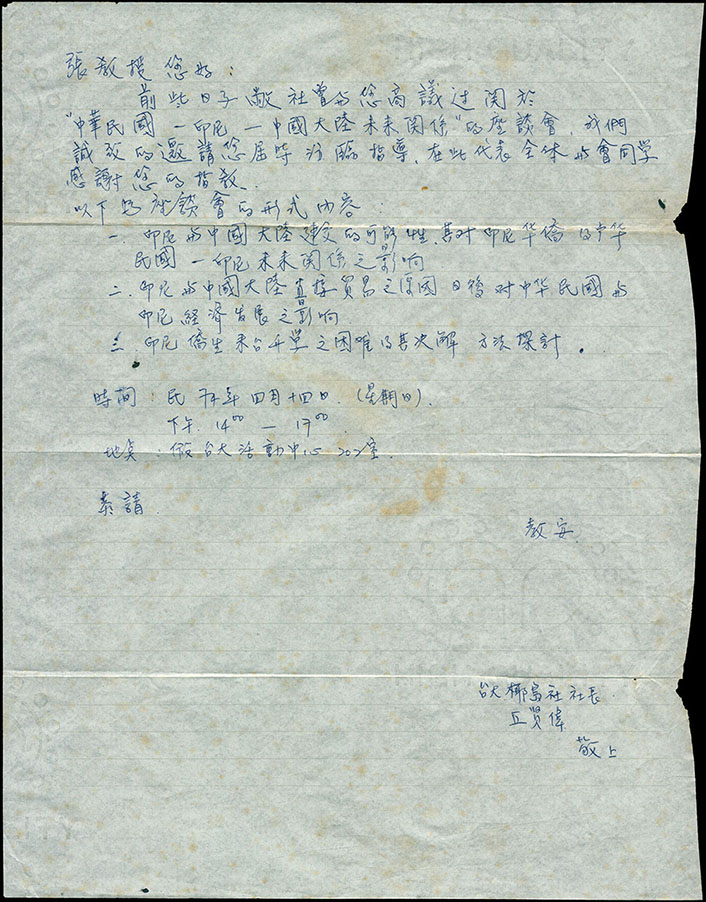 張教授您好：
前些日子敝社曾与您商議过関於
"中華民國－印尼－中國大陸未來関係"的座談會，我們
誠致的邀請您屆時涖臨指導，在此代表全体与會同学
感謝您的指教．
以下為座談會的形式內容：
一．印尼与中國大陸建交的可能性，其对印尼华僑及中华
民國－印尼未來関係之影响
二．印尼与中國大陸直接貿易之原因 日後对中华民國与
印尼經济发展之影响
三．印尼僑生來台升學之困难及其決解方法探討．
時間：民74年四月十四日．（星期日）．
下午．14⁰⁰ — 17⁰⁰
地點：假台大活動中心202室．
恭請．
教安．
台大椰島社社長
丘贤偉
敬上